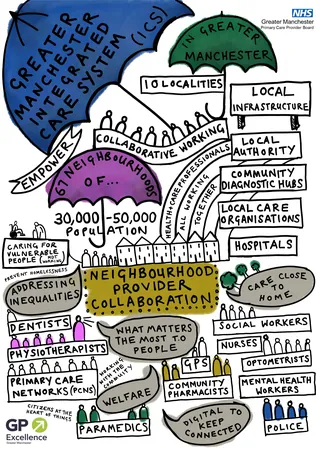 GREATER
MANCHESTER
INTEGRATED
CARE SYSTEM (ICS)
IN GREATER
MANCHESTER
NHS
Greater Manchester
Primary Care Provider Board
10 LOCALITIES
LOCAL
INFRASTRUCTURE
COLLABORATIVE WORKING
EMPOWER
67 NEIGHBOURHOODS
OF...
30,000-50,000
POPULATION
HEALTHCARE PROFESSIONALS
ALL WORKING
TOGETHER
LOCAL
AUTHORITY
COMMUNITY
DIAGNOSTIC HUBS
LOCAL CARE
ORGANISATIONS
HOSPITALS
CARING FOR
VULNERABLE
PEOPLE
PREVENT HOMELESSNESS
ADDRESSING
INEQUALITIES
NEIGHBOURHOOD
PROVIDER
COLLABORATION
CARE CLOSE
TO HOME
DENTISTS
PHYSIOTHERAPISTS
WHAT MATTERS
THE MOST TO
PEOPLE
SOCIAL WORKERS
NURSES
OPTOMETRISTS
PRIMARY CARE
NETWORKS (PCNS)
WORKING
WITH THE
COMMUNITY
WELFARE
GPS
COMMUNITY
PHARMACISTS
MENTAL HEALTH
WORKERS
CITIZENS AT THE
HEART OF THINGS
PARAMEDICS
DIGITAL TO KEEP
CONNECTED
POLICE
GP
Excellence
Greater Manchester